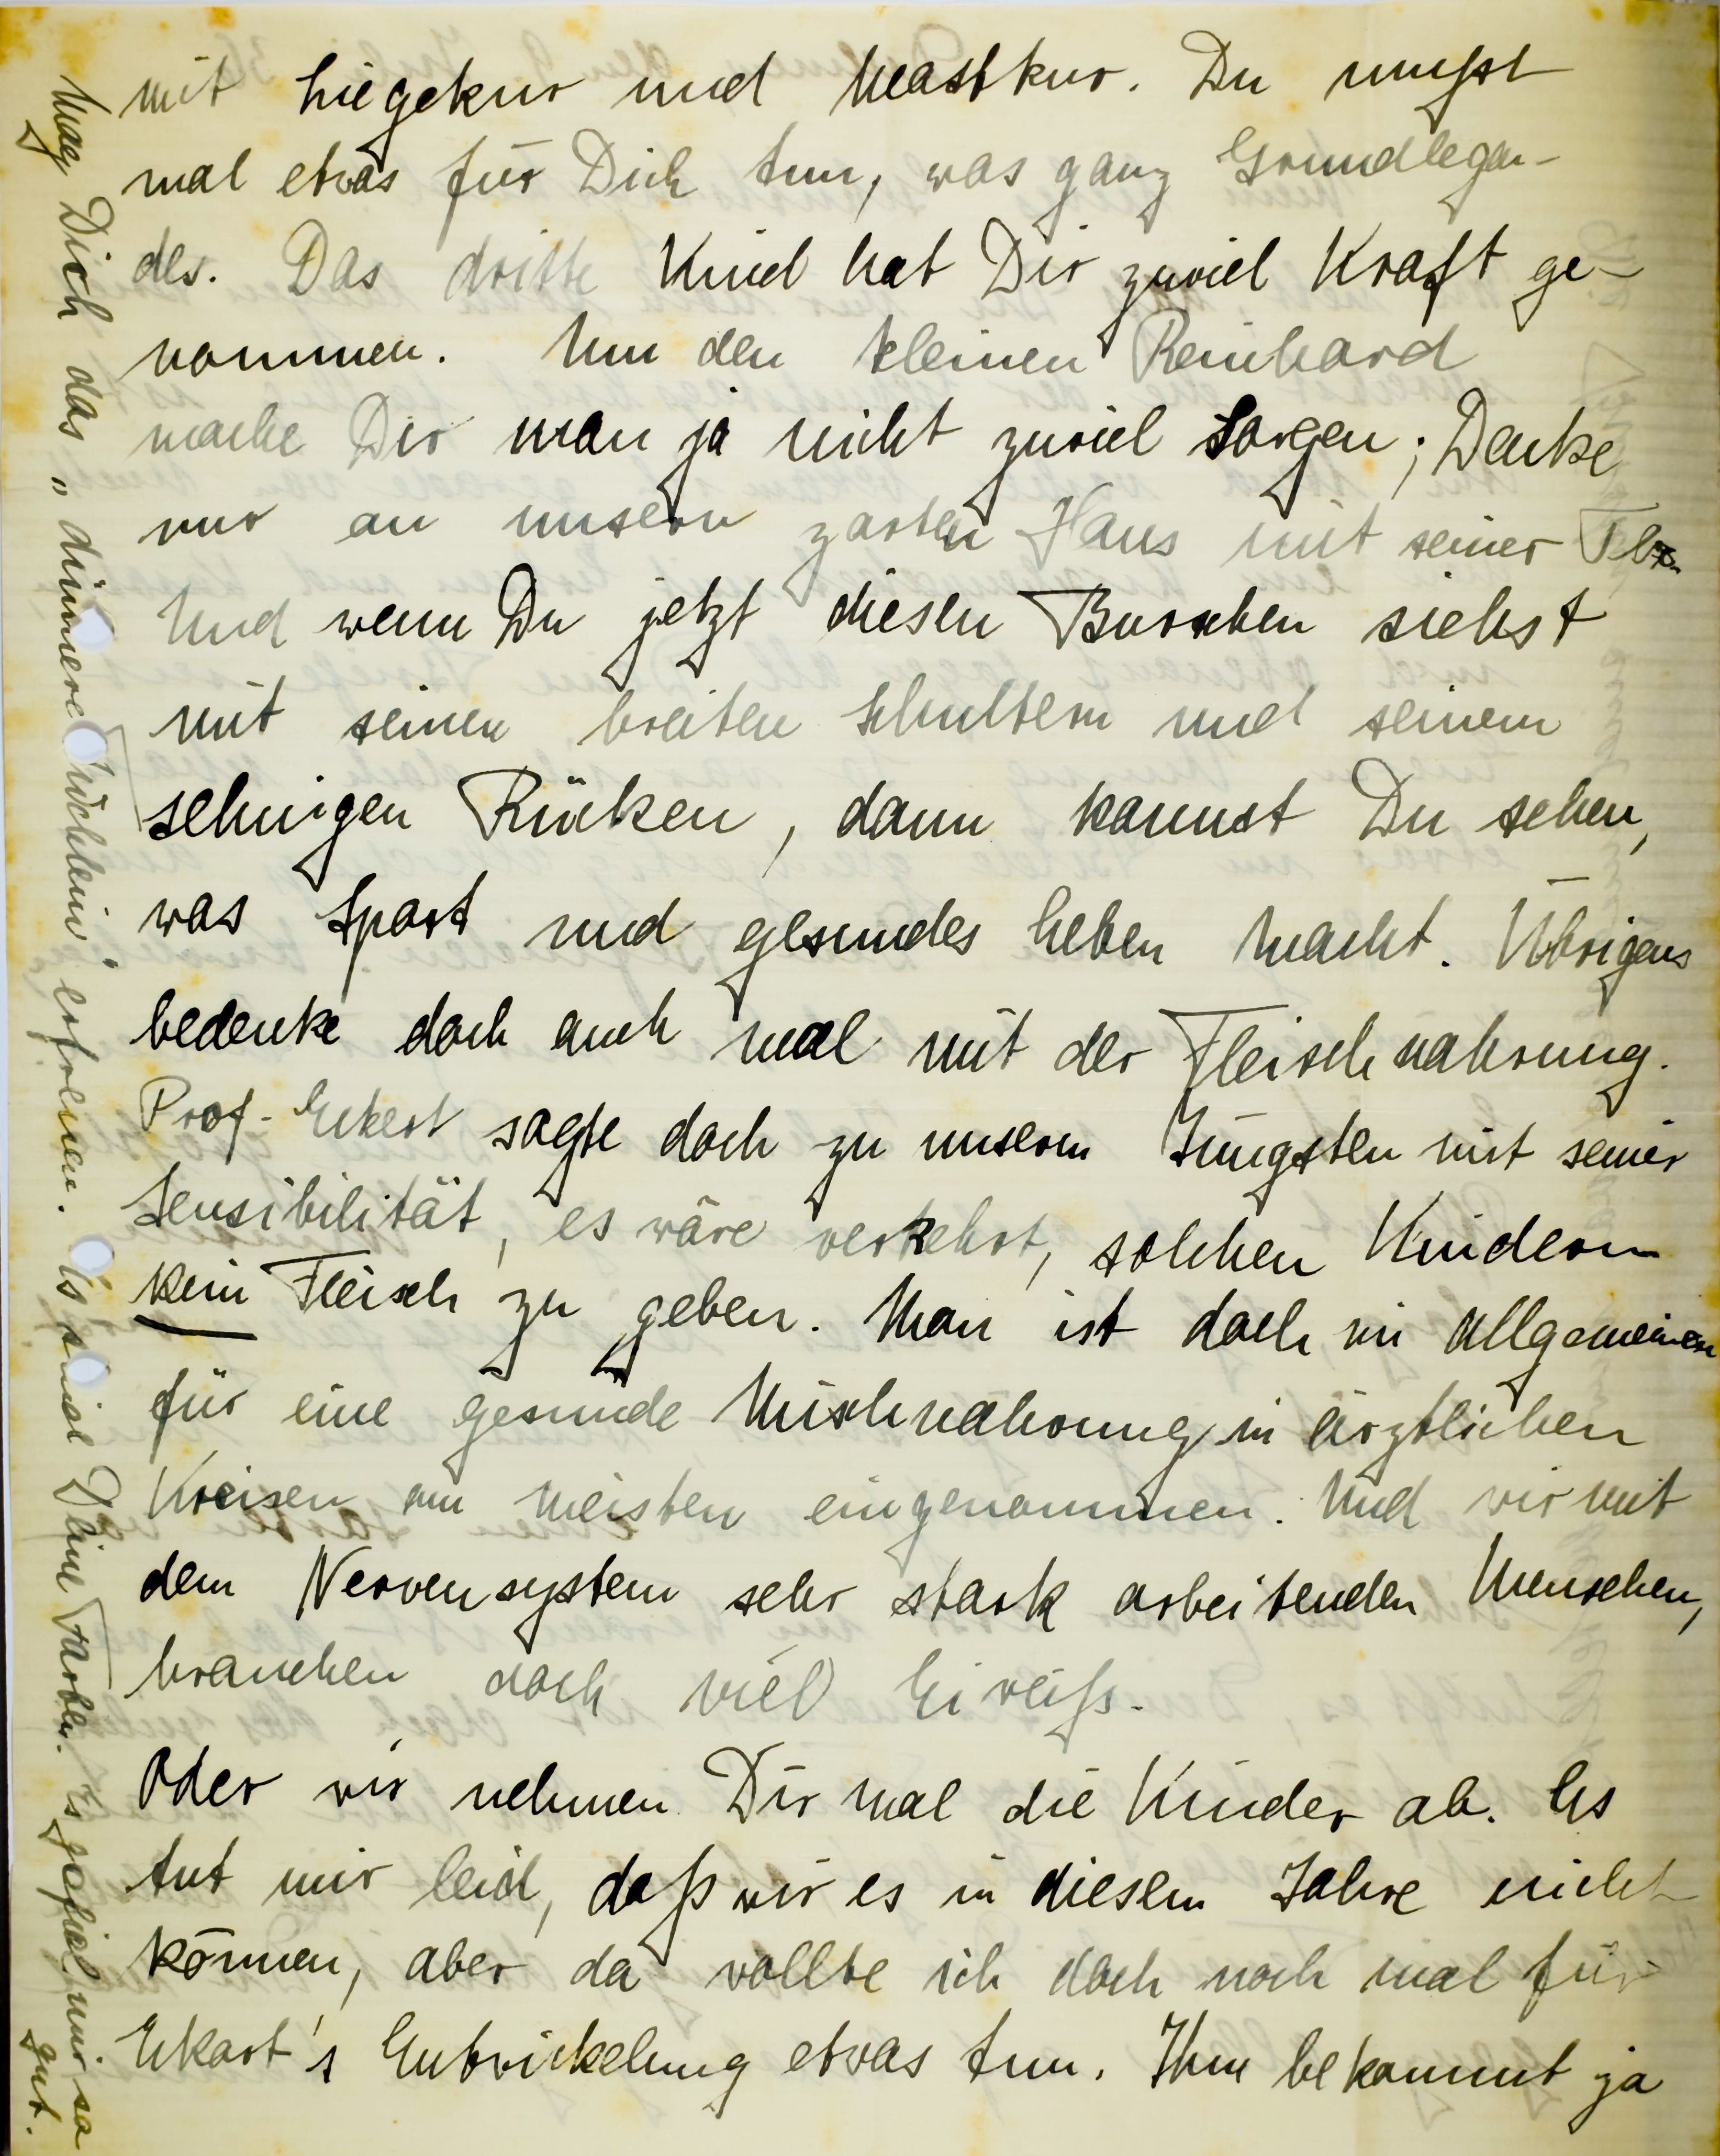 mit Liegekur und Mastkur. Du mußt
mal etwas für Dich tun, was ganz Grundlegen-
des. Das dritte Kind hat Dir zuviel Kraft ge-
nommen. Um den kleinen Reinhard
mache Dir man ja nicht zuviel Sorgen; Denke
nur an unsern zarten Hans mit seiner Tbc.
Und wenn Du jetzt diesen Burschen siehst
mit seinen breiten Schultern und seinem
sehnigen Rücken, dann kannst Du sehen,
was Sport und gesundes Leben macht. Übrigens
bedenke doch auch mal mit der Fleischnahrung.
Prof. Eckert sagte doch zu unserm Jüngsten mit seiner
Sensibilität, es wäre verkehrt, solchen Kindern
kein Fleisch zu geben. Man ist doch im allgemeinen
für eine gesunde Mischnahrung in ärztlichen
Kreisen am meisten eingenommen. Und wir mit
dem Nervensystem sehr stark arbeitenden Menschen,
brauchen doch viel Eiweiß.
Oder wir nehmen Dir mal die Kinder ab. Es
tut mir leid, daß wir es in diesem Jahre nicht
können, aber da wollte ich doch noch mal für
Ekart's Entwickelung etwas tun. Ihm bekommt ja
Mag Dich das " erfreuen. Es sind Deine Farben. Es gefiel mir so
gut.